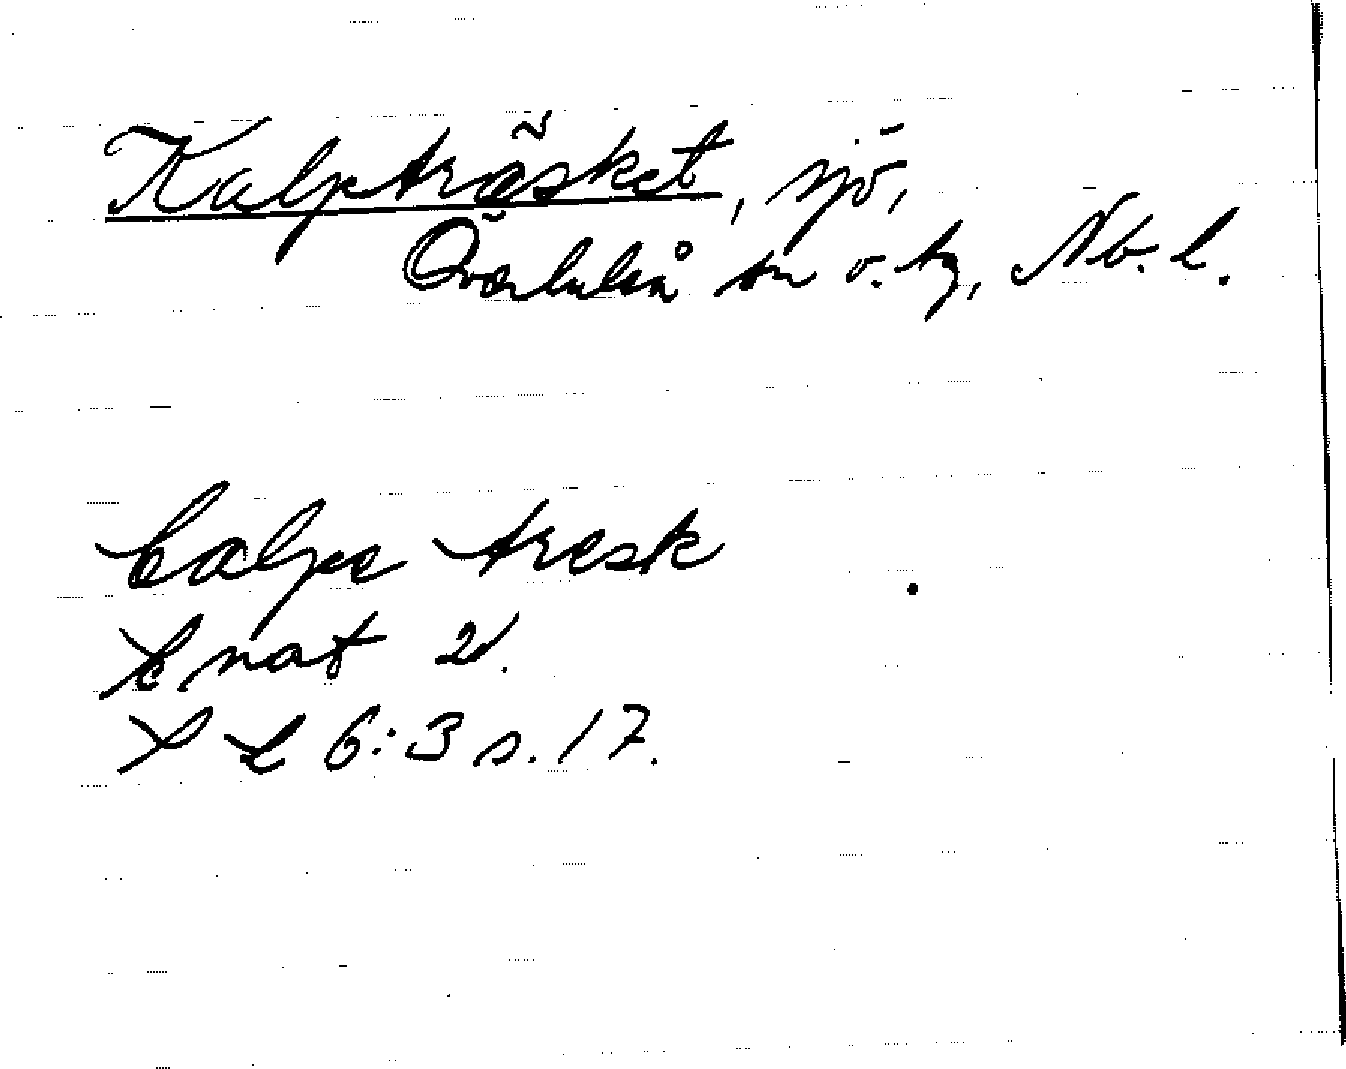 Kalpträsket, sjö,
Överluleå sn o. tg, Nb. l.
Calpe tresk
nat 2.
6:3 s. 17.